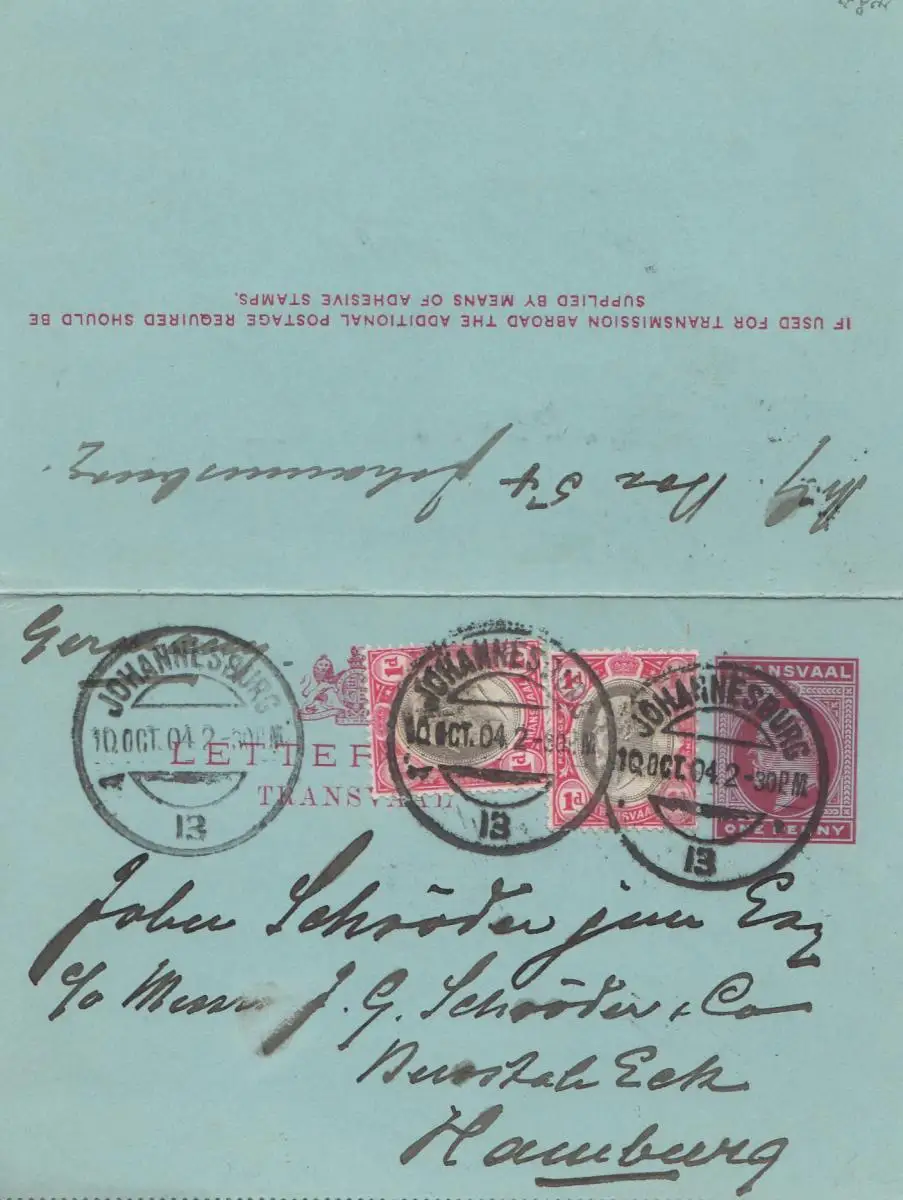 IF USED FOR TRANSMISSION ABROAD THE ADDITIONAL POSTAGE REQUIRED SHOULD BE
SUPPLIED BY MEANS OF ADHESIVE STAMPS.
Box 54 Johannesburg.
Germany
LETTER
TRANSVAAL
JOHANNESBURG
10 OCT. 04 2-30PM
13
1d
TRANSVAAL
JOHANNESBURG
10 OCT. 04 2-30PM
13
1d
TRANSVAAL
JOHANNESBURG
10 OCT. 04 2-30PM
13
TRANSVAAL
ONE PENNY
John Schröder jun Esq
c/o Messrs J. G. Schröder & Co
Burstah Eck
Hamburg